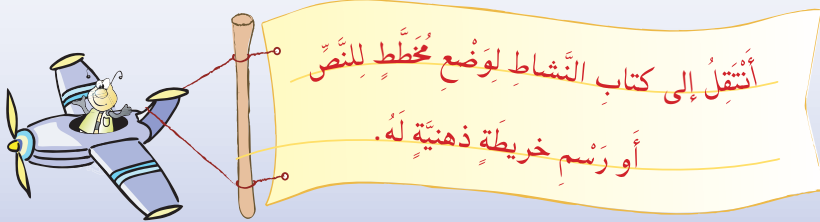 أَنْتَقِلُ إِلى كتابِ النَّشاطِ لِوَضْعِ مُخَطَّطٍ لِلنَّصِّ
أَو رَسْمِ خريطَةٍ ذهنيَّةٍ لَهُ.